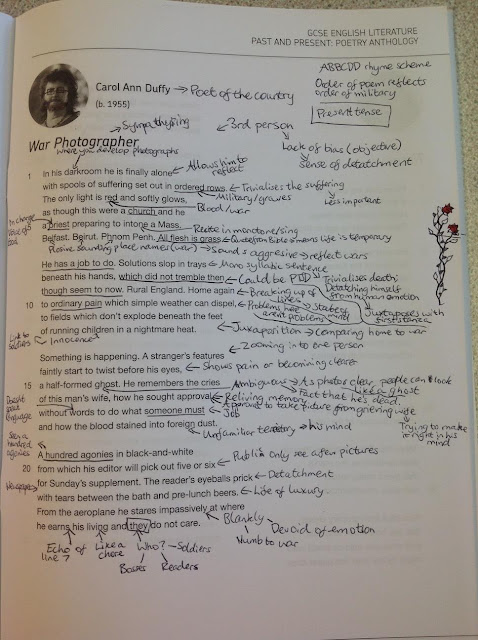 GCSE ENGLISH LITERATURE
PAST AND PRESENT: POETRY ANTHOLOGY
ABBCDD rhyme scheme
Carol Ann Duffy → Poet of the country
Order of poem reflects
order of military
(b. 1955)
Present tense
Sympathysing
3rd person
War Photographer
Lack of bias (objective)
where you develop photographs
Sense of detatchment
1 In his darkroom he is finally alone Allows him to
reflect
with spools of suffering set out in ordered rows. Trivialises the suffering
Military/graves
Less important
The only light is red and softly glows,
Blood/war
as though this were a church and he
In charge
a priest preparing to intone a Mass. Recite in monotone/sing
5 Belfast. Beirut. Phnom Penh. All flesh is grass. Quote from Bible means life is temporary
Plosive sounding place names (war) → Sounds aggresive → reflect wars
He has a job to do. Solutions slop in trays Mono syllabic sentence
beneath his hands, which did not tremble then Could be PTSD Trivialises death;
Detatching himself
from human emotion
though seem to now. Rural England. Home again Breaking up of
lines
10 to ordinary pain which simple weather can dispel, Problems here
arent problems
Juxtaposes with
first stanza
to fields which don't explode beneath the feet
of running children in a nightmare heat. Juxtaposition → Comparing home to war
Link to
soldiers
Innocence
Zooming in to one person
Something is happening. A stranger's features
faintly start to twist before his eyes, Shows pain or becoming clearer
15 a half-formed ghost. He remembers the cries Ambiguous → As photos clear, people can look
like a ghost
Fact that he's dead
of this man's wife, how he sought approval Reliving memory
Approval to take picture from grieving wife
Doesnt
speak
language
without words to do what someone must Job
and how the blood stained into foreign dust.
Unfamiliar teritory → his mind
Trying to make
it right in his
mind
Seen a
hundred
agonies
A hundred agonies in black-and-white
Public only see a few pictures
20 from which his editor will pick out five or six
Newspaper
for Sunday's supplement. The reader's eyeballs prick Detatchment
with tears between the bath and pre-lunch beers. Life of luxury
From the aeroplane he stares impassively at where
Blankly
Devoid of emotion
Numb to war
he earns his living and they do not care.
Echo of
line 7
Like a
chore
Who? → Soldiers
Bosses
Readers